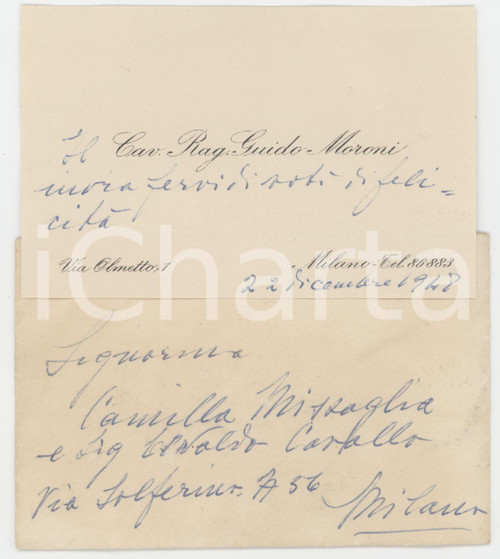 Il Cav. Rag. Guido Moroni
invia fervidi voti di feli=
cità
Via Olmetto, 1 Milano - Tel. 86883
22 dicembre 1948
iCharta
Signorina
Camilla Missaglia
e Sig Osvaldo Cavallo
Via Solferino. 56
Milano